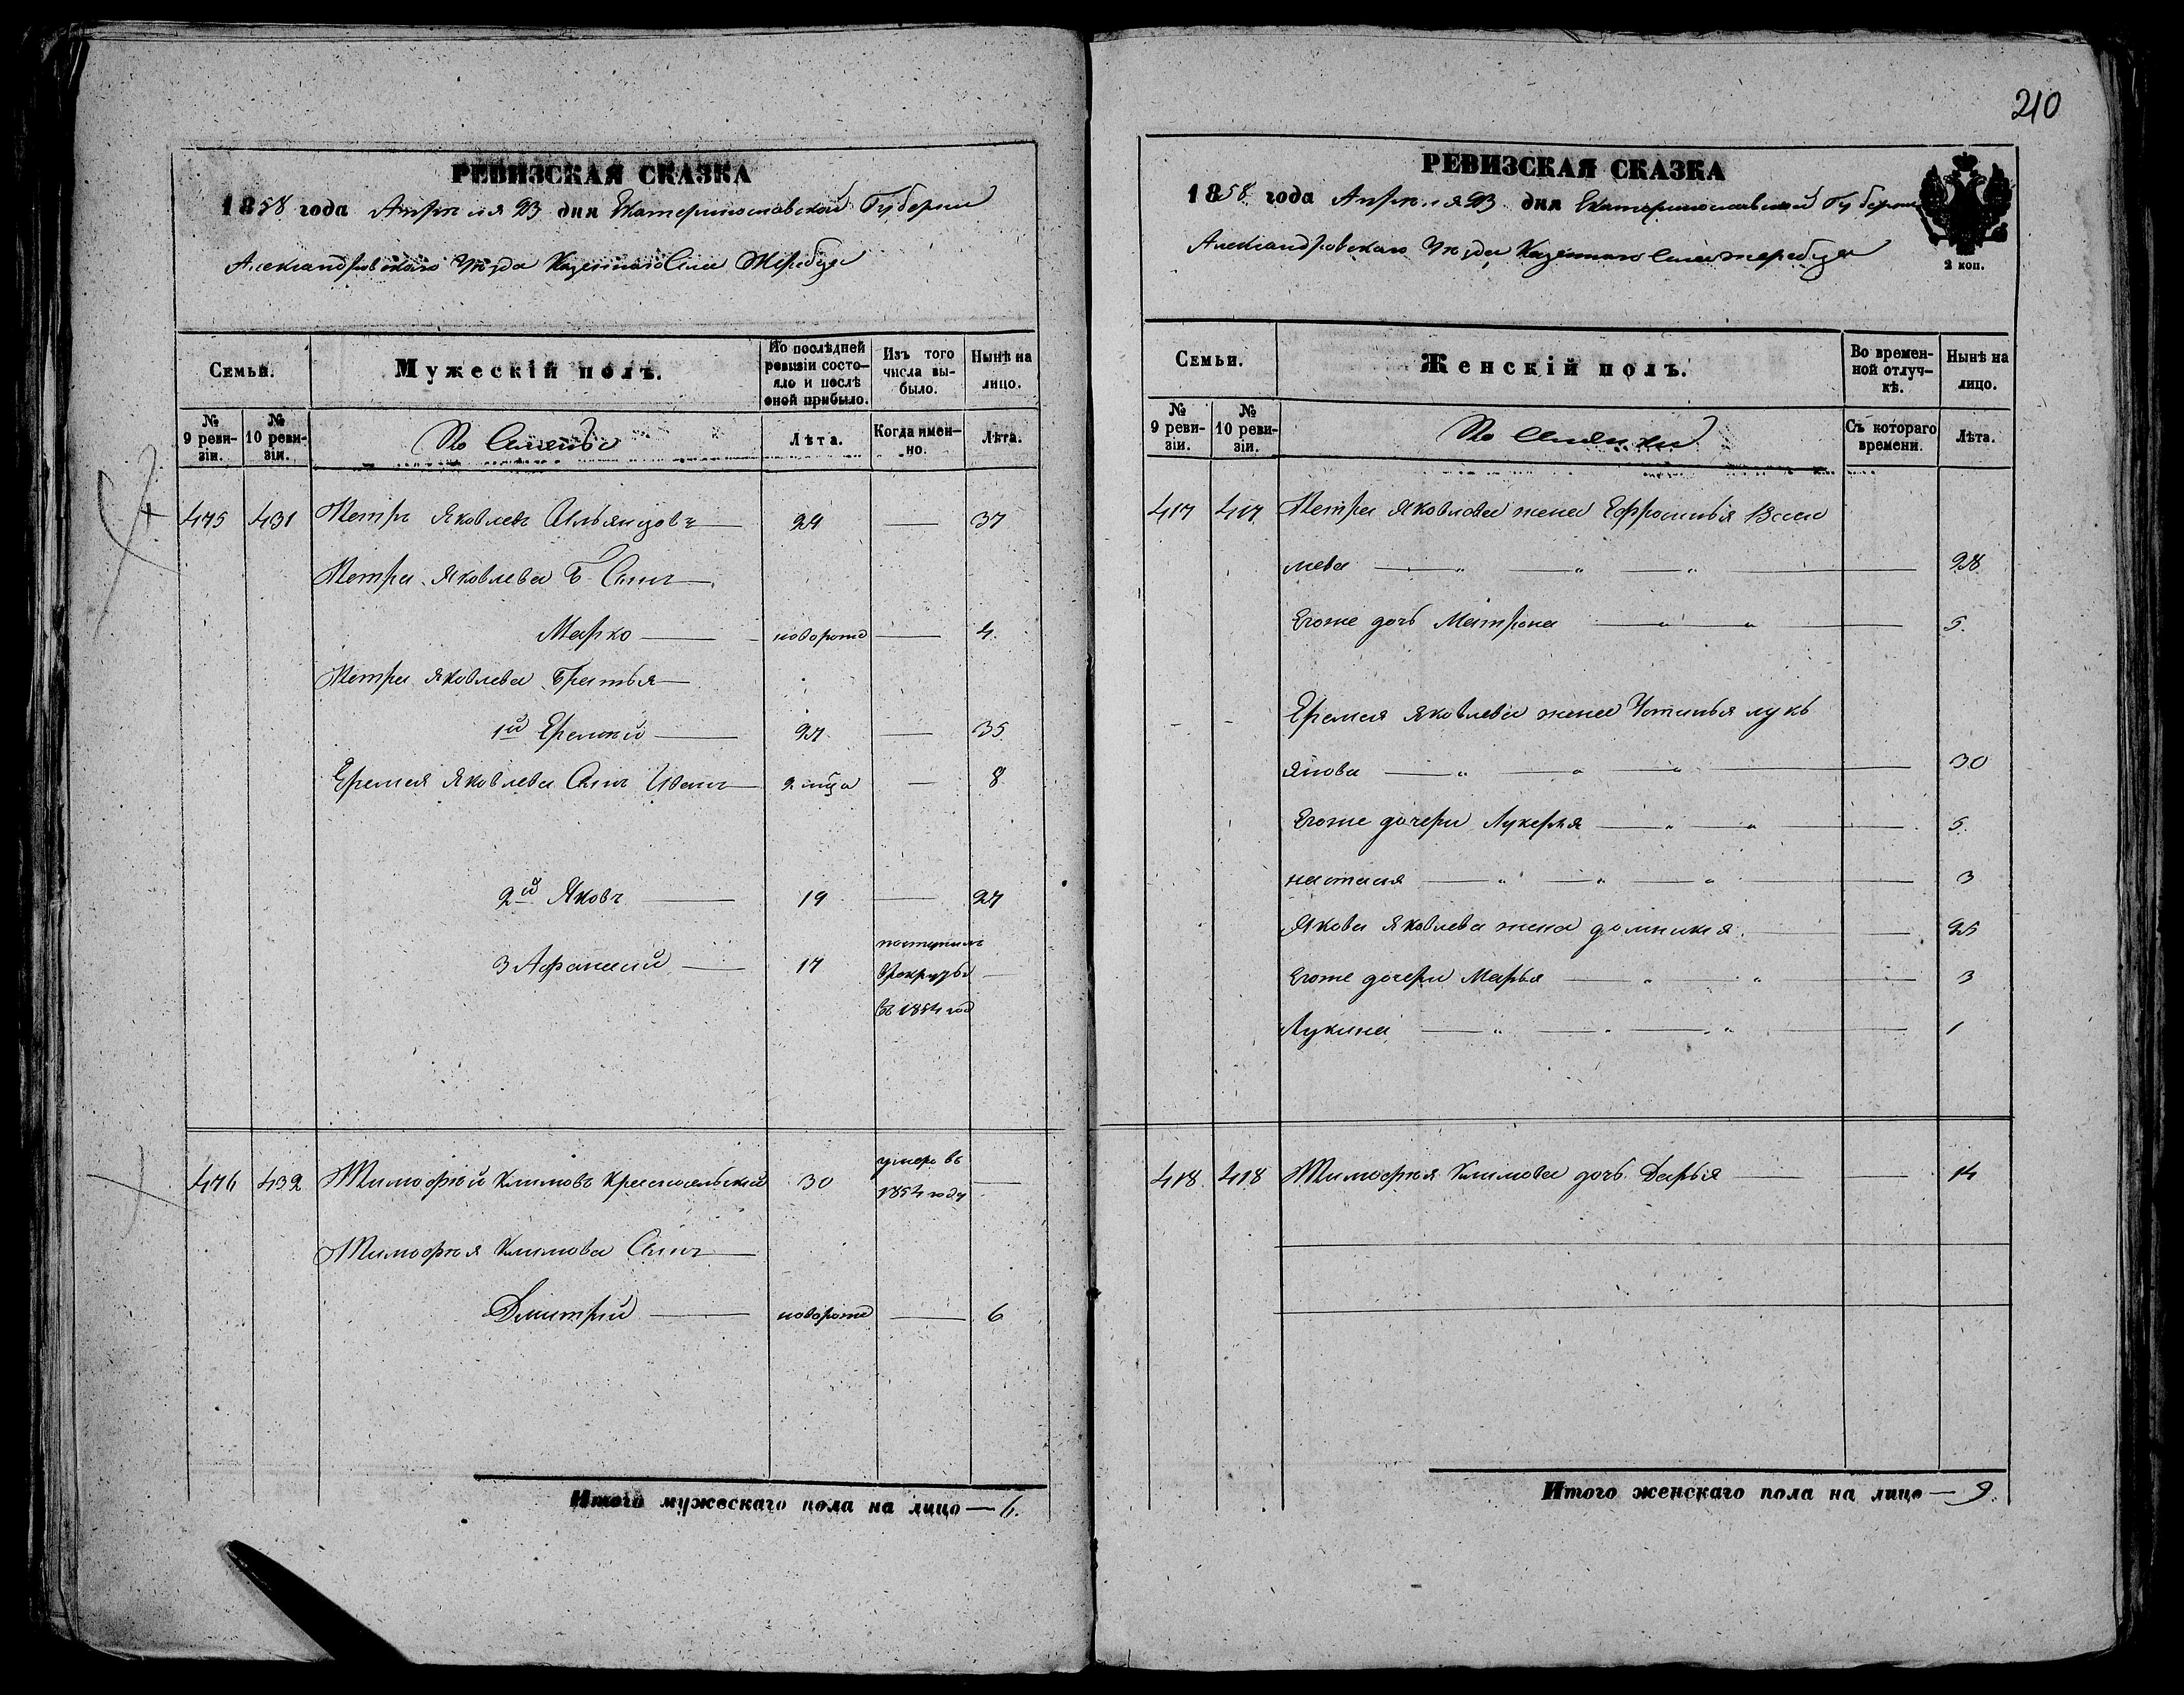 210
РЕВИЗСКАЯ СКАЗКА
1858 года Апреля 23 дня Екатеринославской Губернии
Александровского Уезда Казенного Села Жеребца
Семьи.
Мужескій полъ.
По послѣдней ревизіи состояло и послѣ оной прибыло.
Изъ того числа выбыло.
Нынѣ на лицо.
№ 9 ревизіи.
№ 10 ревизіи.
Лѣта.
Когда именно.
Лѣта.
475 431 Петръ Яковлевъ 29 — 37
Петра Яковлева Сынъ
Марко — новорожд — 4
Петра Яковлева Братья
1й Еремѣй — 27 — 35
Еремея Яковлева Сынъ Иванъ — 8
2й Яковъ — 19 — 27
3 Афанасий — 17 поступилъ
в рекруты —
въ 1854 год
476 432 Тимофѣй Климовъ Красносельский 30 умеръ въ 1854 году —
Тимофѣя Климова Сынъ
Дмитрий — новорожд — 6
Итого мужескаго пола на лицо — 6.
РЕВИЗСКАЯ СКАЗКА
1858 года Апреля 23 дня Екатеринославской Губернии
Александровского Уезда Казенного Села Жеребца
2 коп.
Семьи.
Женскій полъ.
Во временной отлучкѣ.
Нынѣ на лицо.
№ 9 ревизіи.
№ 10 ревизіи.
Съ котораго времени.
Лѣта.
417 417 Петра Яковлева жена Ефросинья Васи
лева — " — " — " — 28
Егоже дочь Матрона — " — " — 5.
Еремея Яковлева жена Устинья лукь
янова — " — " — " — 30
Егоже дочери Лукерья — " — " — 5.
настася — " — " — " — 3
Якова Яковлева жена домникия — 25
Егоже дочери Марья — " — " — 3
Лукина — " — " — " — 1
418 418 Тимофѣя Климова дочь Дарья — 14
Итого женскаго пола на лицо — 9.